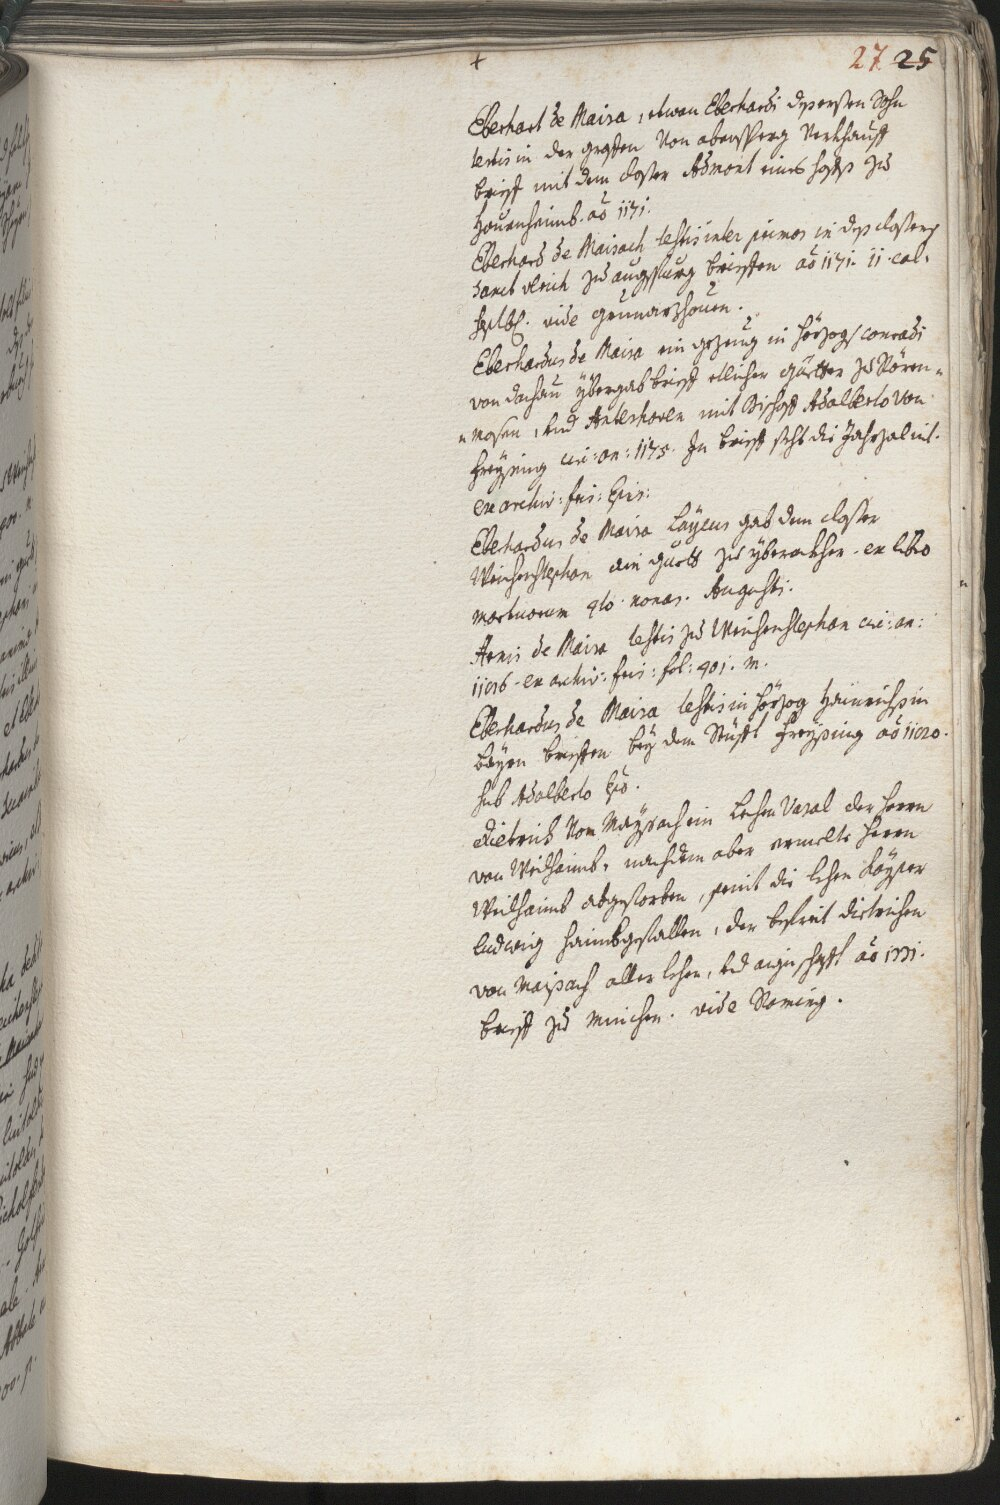 +
27 25
Eberhart de Maisa, etwan Eberhardi des ersten Sohn
testis in der graffen von abensperg Verkhauff
brieff mit dem closter Admont eines hoffs zu
Houenhaimb. aõ 1171.
Eberhard de Maisach testis inter primos in des closters
sanct Ulrich zu augspurg brieffen aõ 1171. 11. cal.
septbr. vide gennarzhouen.
Eberhardus de Maisa ein gezeug in Hörzog Conradi
von dachau ybergab brieff etlicher guetter zu Rören-
mosen, und Antershoven mit Bischoff Adalberto von
Freysing circ: an: 1175. In brieff steht die Jahrzal nit.
ex archiv: fris: Epis:
Eberhardus de Maisa Laycus gab dem closter
Weichenstephan ain guett zu yberackher. ex libro
mortuorum 4to. nonas. Augusti.
Arnis de Maisa testis zu Weichenstephan circ: an:
ex archiv: fris: fol: 401. m.
Eberhardus de Maisa testis in Hörzog Hainrichs in
bayrn brieffen bey dem Stüfft Freysing aõ
sub Adalberto Epõ.
Dietrich von Maysach ein Lehen Vasal der Herrn
von Weilhaimb, nachdem aber ermelte Herrn
Weilhaimb abgestorben, seint die lehen Kayser
Ludwig haimbgefallen, der befreit dietrichen
von Maisach aller lehen, und aigenschafft aõ 1331.
brieff zu München. vide